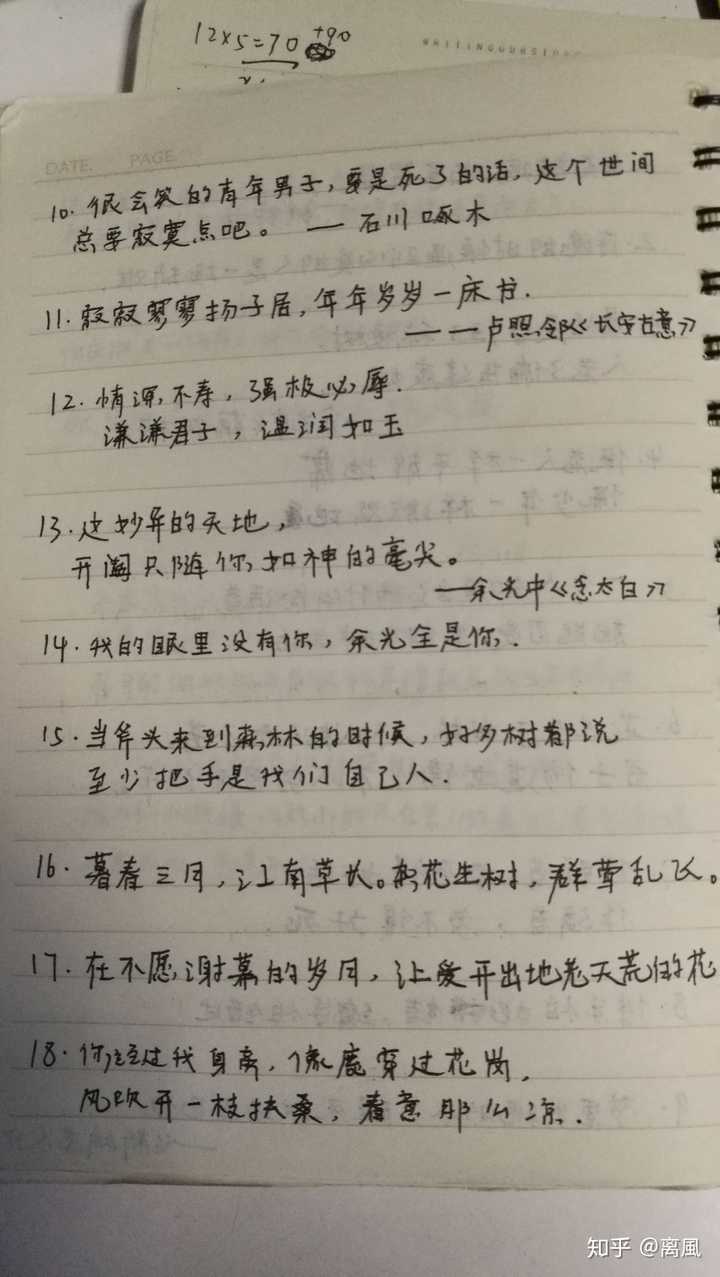 12×5=70 +90
WRITING
DATE. PAGE.
10. 很会笑的青年男子，要是死了的话，这个世间
总要寂寞点吧。 — 石川啄木
11. 寂寂寥寥扬子居，年年岁岁一床书.
——卢照邻《长安古意》
12. 情深不寿，强极必辱.
谦谦君子，温润如玉
13. 这妙异的天地，
开阖只随你如神的毫尖。
—余光中《念太白》
14. 我的眼里没有你，余光全是你.
15. 当斧头来到森林的时候，好多树都说
至少把手是我们自己人.
16. 暮春三月，江南草长。杂花生树，群莺乱飞。
17. 在不愿谢幕的岁月，让爱开出地老天荒的花
18. 你经过我身旁，像鹿穿过花岗，
风吹开一枝扶桑，春意那么凉.
知乎 @离風